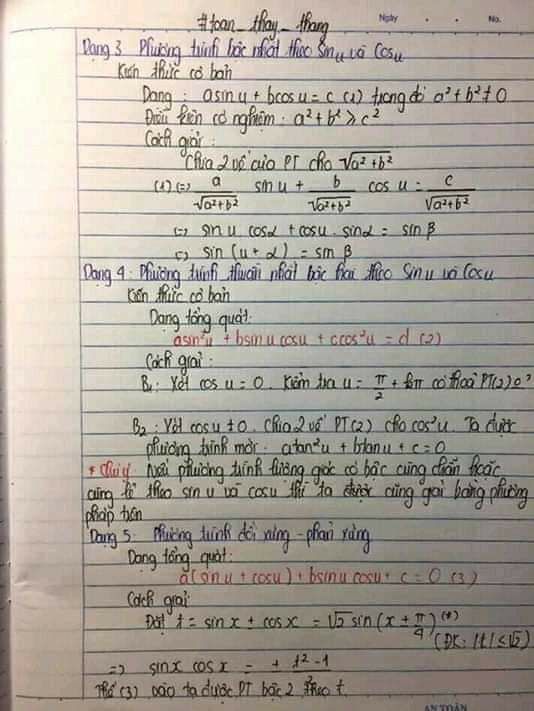 #toan_thay_thang
Ngày . . No.
Dạng 3 Phương trình bậc nhất theo Sinu và Cosu
Kiến thức cơ bản
Dạng : asinu + bcosu = c (1) trong đó a² + b² ≠ 0
Điều kiện có nghiệm : a² + b² ≥ c²
Cách giải :
Chia 2 vế của PT cho √(a²+b²)
(1) (=) a/√(a²+b²) sin u + b/√(a²+b²) cos u = c/√(a²+b²)
(=) sin u cosα + cosu . sinα = sin β
(=) sin (u + α) = sin β
Dạng 4 : Phương trình thuần nhất bậc hai theo Sinu và Cosu
Kiến thức cơ bản
Dạng tổng quát:
asin²u + bsinu cosu + ccos²u = d (2)
Cách giải :
B₁ : Xét cos u = 0. Kiểm tra u = π/2 + kπ có thoả PT(2) o?
B₂ : Xét cosu ≠ 0. Chia 2 vế PT(2) cho cos²u. Ta được
phương trình mới : atan²u + btanu + c = 0
* Chú ý Nếu phương trình lượng giác có bậc cùng chẵn hoặc
cùng lẻ theo sin u và cosu thì ta được cũng giải bằng phương
pháp trên
Dạng 5 Phương trình đối xứng - phản xứng
Dạng tổng quát:
a(sinu + cosu) + bsinu cosu + c = 0 (3)
Cách giải
Đặt t = sinx ± cosx = √2 sin(x ± π/4) (*)
(ĐK: |t| ≤ √2)
=) sinx cosx = ± t² - 1
Thế (3) vào ta được PT bậc 2 theo t.
AN TOÀN